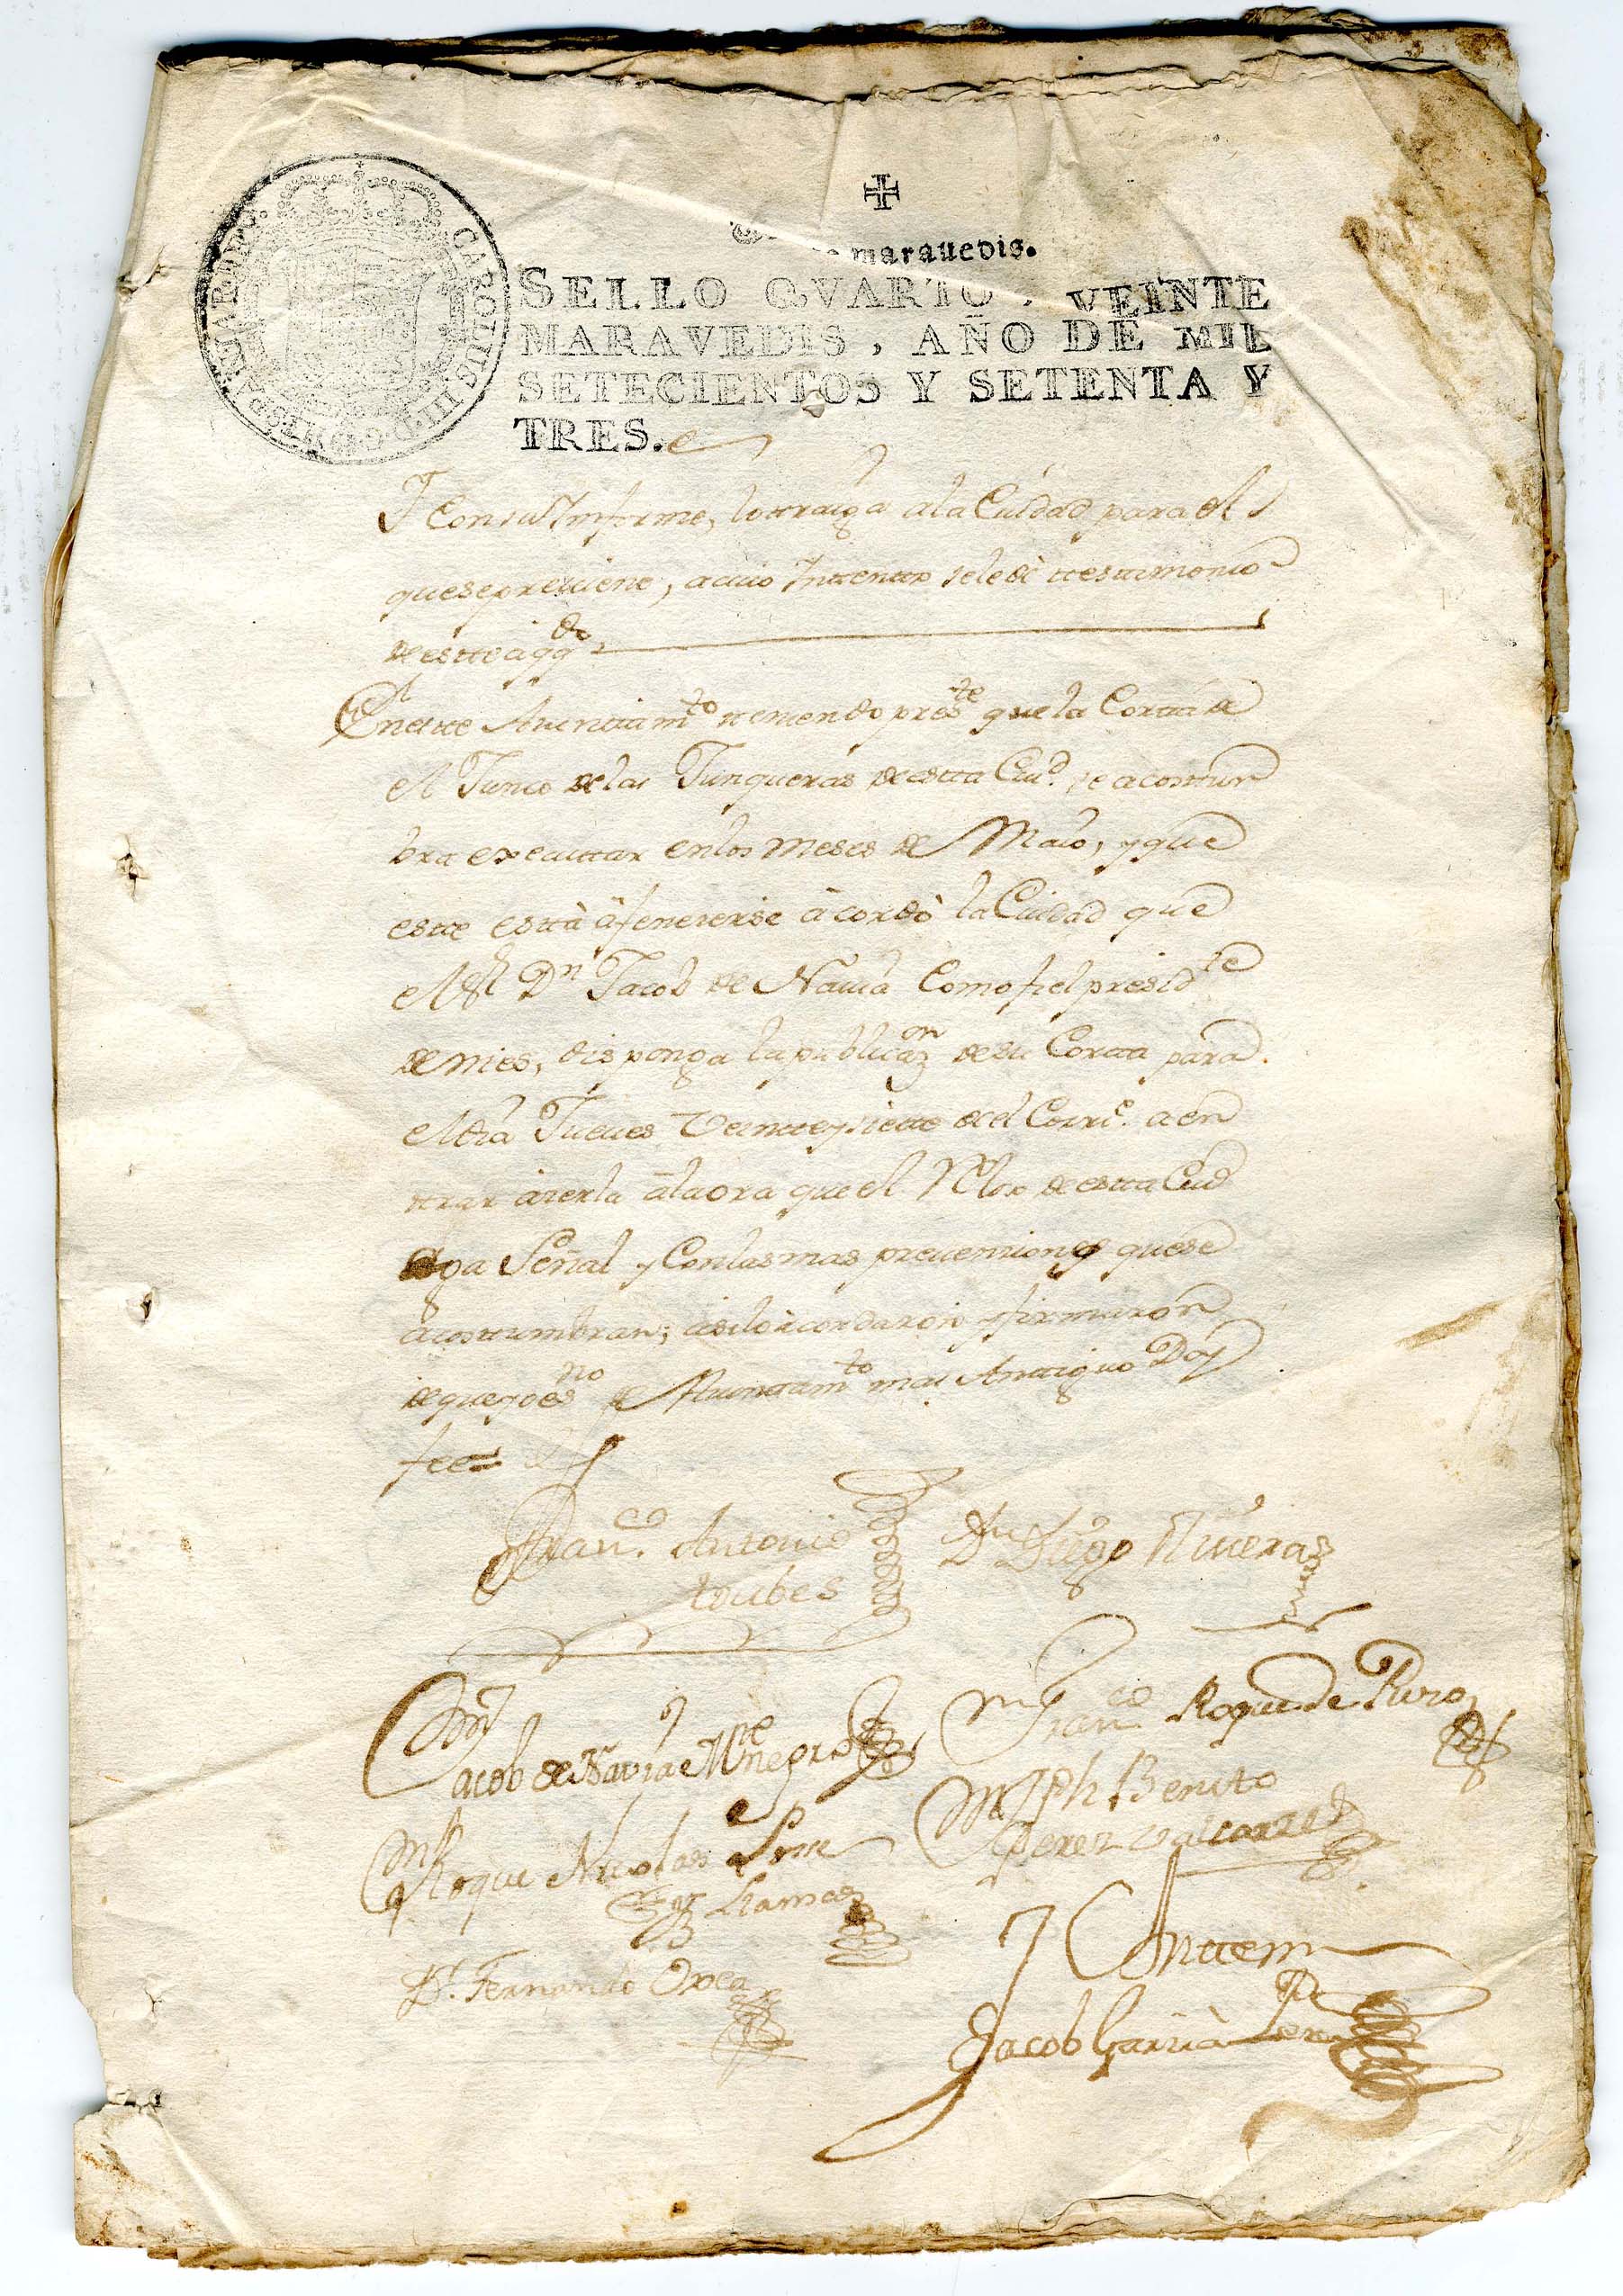 CAROLUS III D.G. HISPANIAR. REX
marauedis.
SELLO QVARTO, VEINTE
MARAVEDIS, AÑO DE MIL
SETECIENTOS Y SETENTA Y
TRES.
Y Con su Ynforme, lo trraiga a la Ciudad para el
que se preuiene, a cuio Yntentto se le dè ttestimonio
de estte aqdo
En estte Aiunttamto tteniendo preste que la Cortta de
el Junco de las Junqueras de estta Ciud. se acosttum
bra executtar en los meses de Maio, y que
estte està à fenezerse àcordò la Ciudad que
el Sr Dn Jacob de Nauia Como fiel presidte
de mes, disponga la publicazon de su Cortta para
el dia Jueues Veintteysiette de el Corrte. a en
trar azerla à la ora que el Relox de estta Ciud
aga Señal y Con las mas preuenziones que se
acosttumbran; asi lo àcordaron y firmaron
de que yo esno de Aiunttamto mas Anttiguo Doy
fee=
Franco. Antonio
toubes
Dn Diego Riueras
Jacob de Navia Mttenegro
Franco Roque de Puro
Roque Nicolas
Jph Benito
Perez Valcarze
Llamas
Dn. Fernando
Anttemi
Jacob Garzia